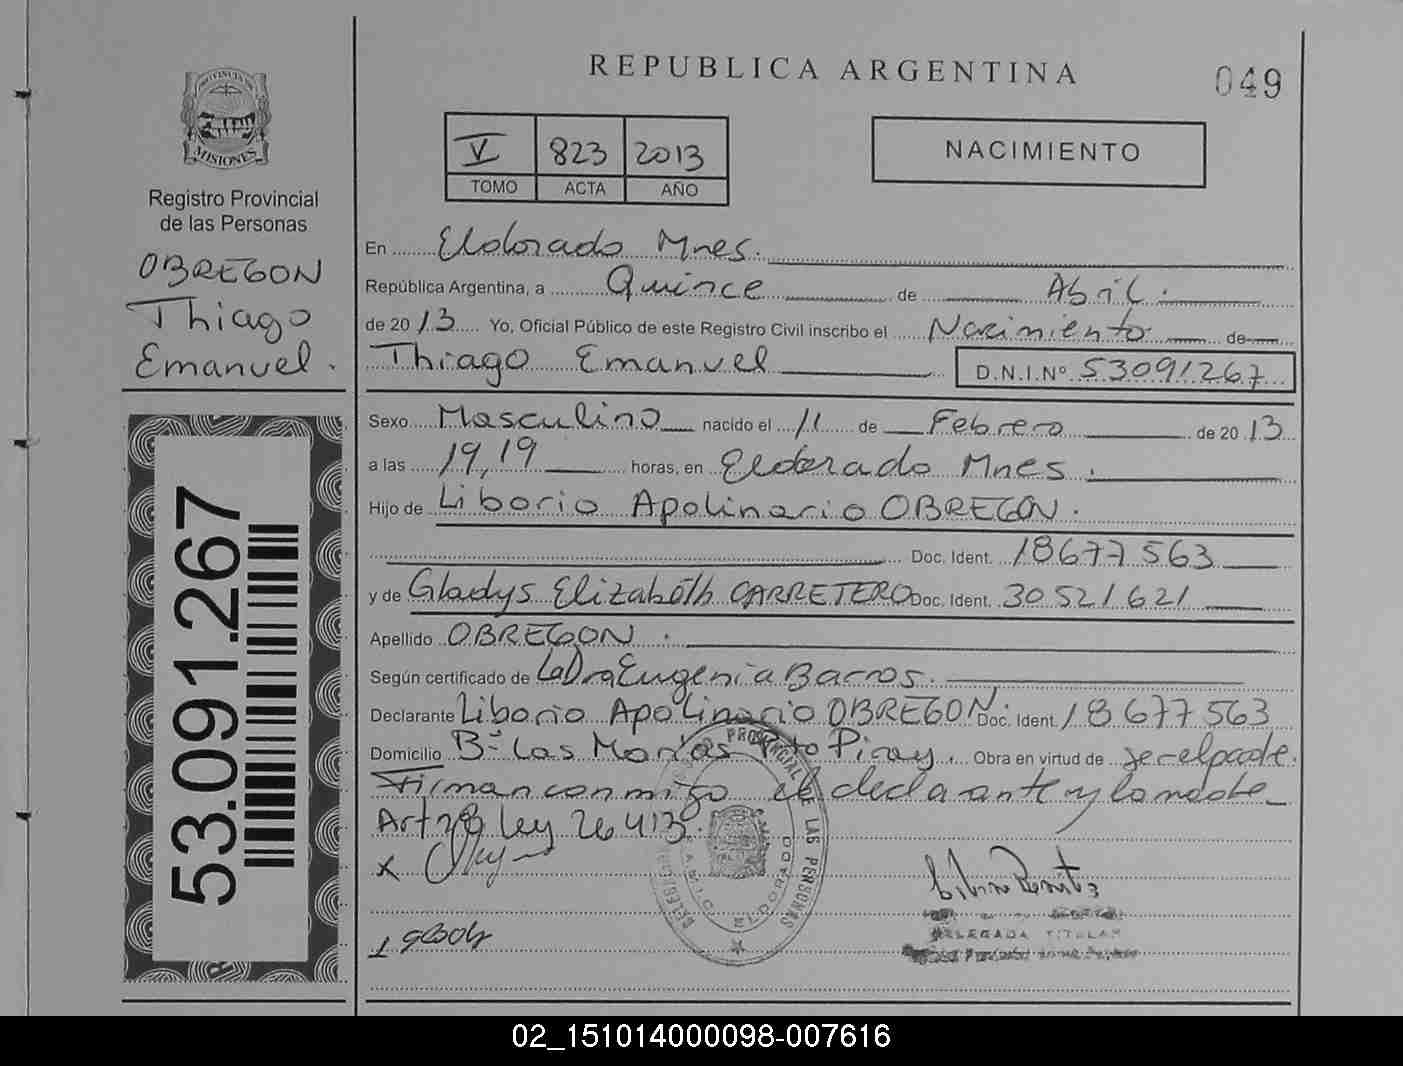 REPUBLICA ARGENTINA
049
PROVINCIA DE
MISIONES
Registro Provincial
de las Personas
OBREGON
Thiago
Emanuel.
V 823 2013
TOMO ACTA AÑO
NACIMIENTO
En Eldorado Mnes.
República Argentina, a Quince de Abril.
de 2013 Yo, Oficial Público de este Registro Civil inscribo el Nacimiento de
Thiago Emanuel D.N.I.Nº 53091267
Sexo Masculino nacido el 11 de Febrero de 2013
a las 19,19 horas, en Eldorado Mnes.
Hijo de Liborio Apolinario OBREGON.
Doc. Ident. 18677563
y de Gladys Elizabeth CARRETERO Doc. Ident. 30521621
Apellido OBREGON.
Según certificado de La Dra Eugenia Barros.
Declarante Liborio Apolinario OBREGON. Doc. Ident. 18677563
Domicilio Bº Las Marías Pto Piray. Obra en virtud de ser el padre.
Firman conmigo el declarante y la madre
Art 28 ley 26413.
x
53.091.267
PROVINCIAL DE LAS PERSONAS
ELDORADO
DELEGADA TITULAR
02_151014000098-007616